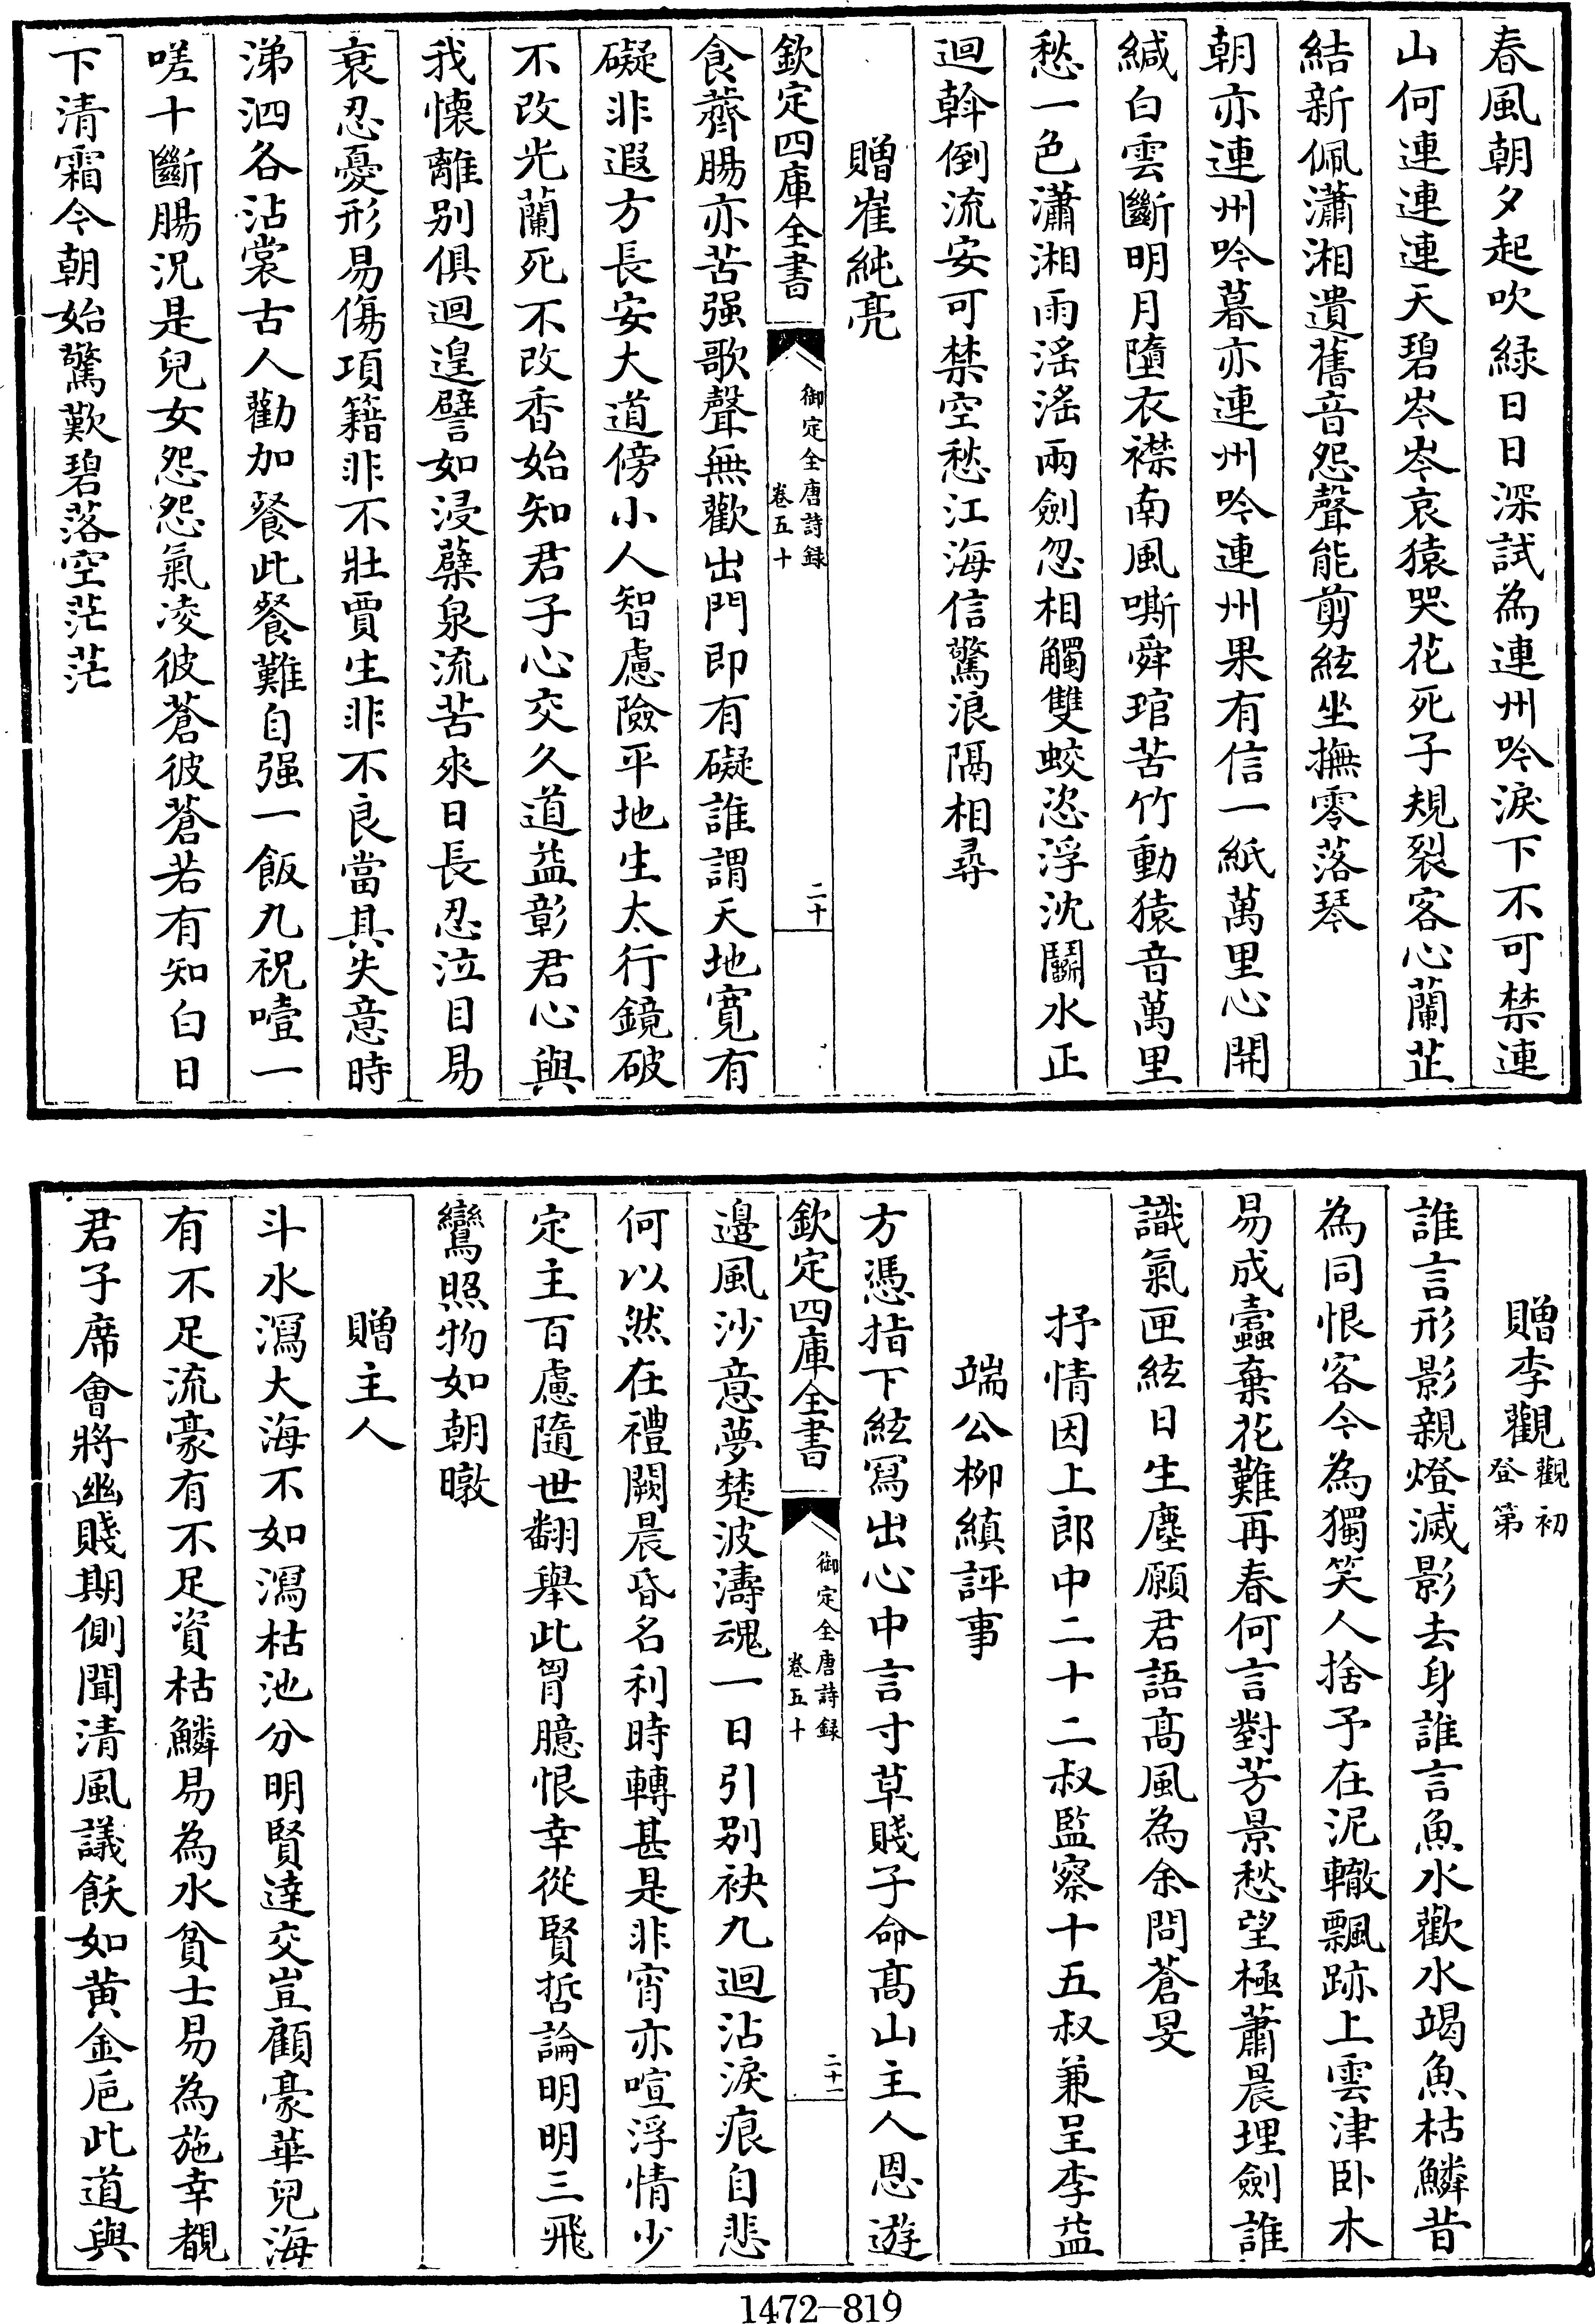 春風朝夕起吹緑日日深試為連州吟淚下不可禁連
山何連連連天碧岑岑哀猿哭花死子規裂客心蘭芷
結新佩瀟湘遺舊音怨聲能剪絃坐撫零落琴
朝亦連州吟暮亦連州吟連州果有信一紙萬里心開
緘白雲斷明月墮衣襟南風嘶舜琯苦竹動猿音萬里
愁一色瀟湘雨滛滛兩劍忽相觸雙蛟恣浮沈鬭水正
迴斡倒流安可禁空愁江海信驚浪隔相尋
贈崔純亮
欽定四庫全書
御定全唐詩録
卷五十
二十
食薺腸亦苦强歌聲無歡出門即有礙誰謂天地寛有
礙非遐方長安大道傍小人智慮險平地生太行鏡破
不改光蘭死不改香始知君子心交久道益彰君心與
我懐離别俱迴遑譬如浸蘖泉流苦來日長忍泣目易
衰忍憂形易傷項籍非不壯賈生非不良當其失意時
涕泗各沾裳古人勸加餐此餐難自强一飯九祝噎一
嗟十斷腸況是兒女怨怨氣凌彼蒼彼蒼若有知白日
下清霜今朝始驚歎碧落空茫茫
贈李觀
觀初
登第
誰言形影親燈滅影去身誰言魚水歡水竭魚枯鱗昔
為同恨客今為獨笑人捨予在泥轍飄跡上雲津卧木
易成蠧棄花難再春何言對芳景愁望極蕭晨埋劍誰
識氣匣絃日生塵願君語髙風為余問蒼旻
抒情因上郎中二十二叔監察十五叔兼呈李益
端公栁縝評事
方憑指下絃冩出心中言寸草賤子命髙山主人恩遊
欽定四庫全書
御定全唐詩録
卷五十
二十一
邉風沙意夢楚波濤魂一日引别袂九迴沾淚痕自悲
何以然在禮闕晨昏名利時轉甚是非宵亦喧浮情少
定主百慮隨世翻舉此胷臆恨幸從賢哲論明明三飛
鸞照物如朝暾
贈主人
斗水瀉大海不如瀉枯池分明賢達交豈顧豪華兒海
有不足流豪有不足資枯鱗易為水貧士易為施幸覩
君子席會將幽賤期側聞清風議飫如黄金巵此道與
1472-819